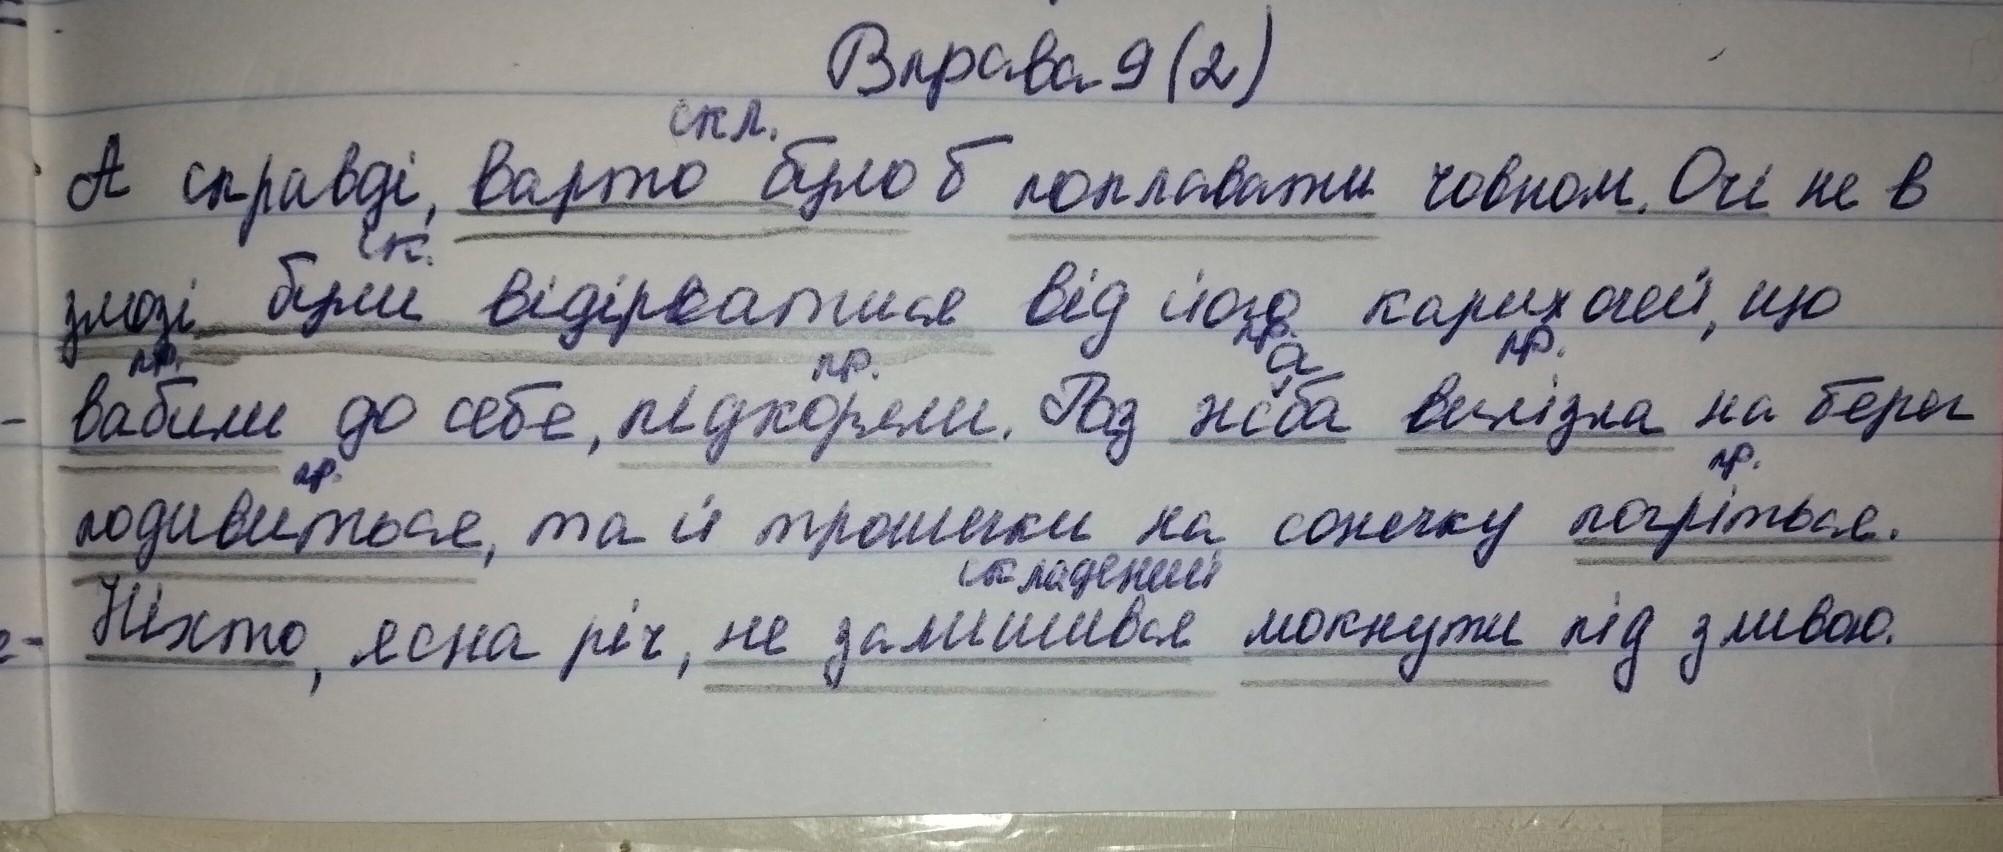 Вправа 9 (2)
скл.
А справді, варто було б поплавати човном. Очі не в
ск.
змозі були відірватися від його карих очей, що
пр. пр. пр. а пр.
вабили до себе, підкоряли. Раз жаба вилізла на берег
пр. пр.
подивиться, та й трошки на сонечку погріться.
складений
Ніхто, ясна річ, не залишився мокнути під зливою.